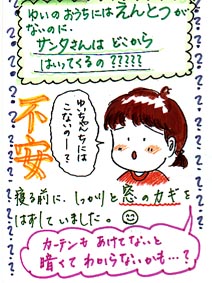 ゆいのおうちにはえんとつが
ないのに、
サンタさんは どこから
はいってくるの?????
不安
ゆいちゃんちには
こないのー?
寝る前に、しっかりと窓のカギを
はずしていました。
カーテンも あけてないと
暗くて わからないかも…?